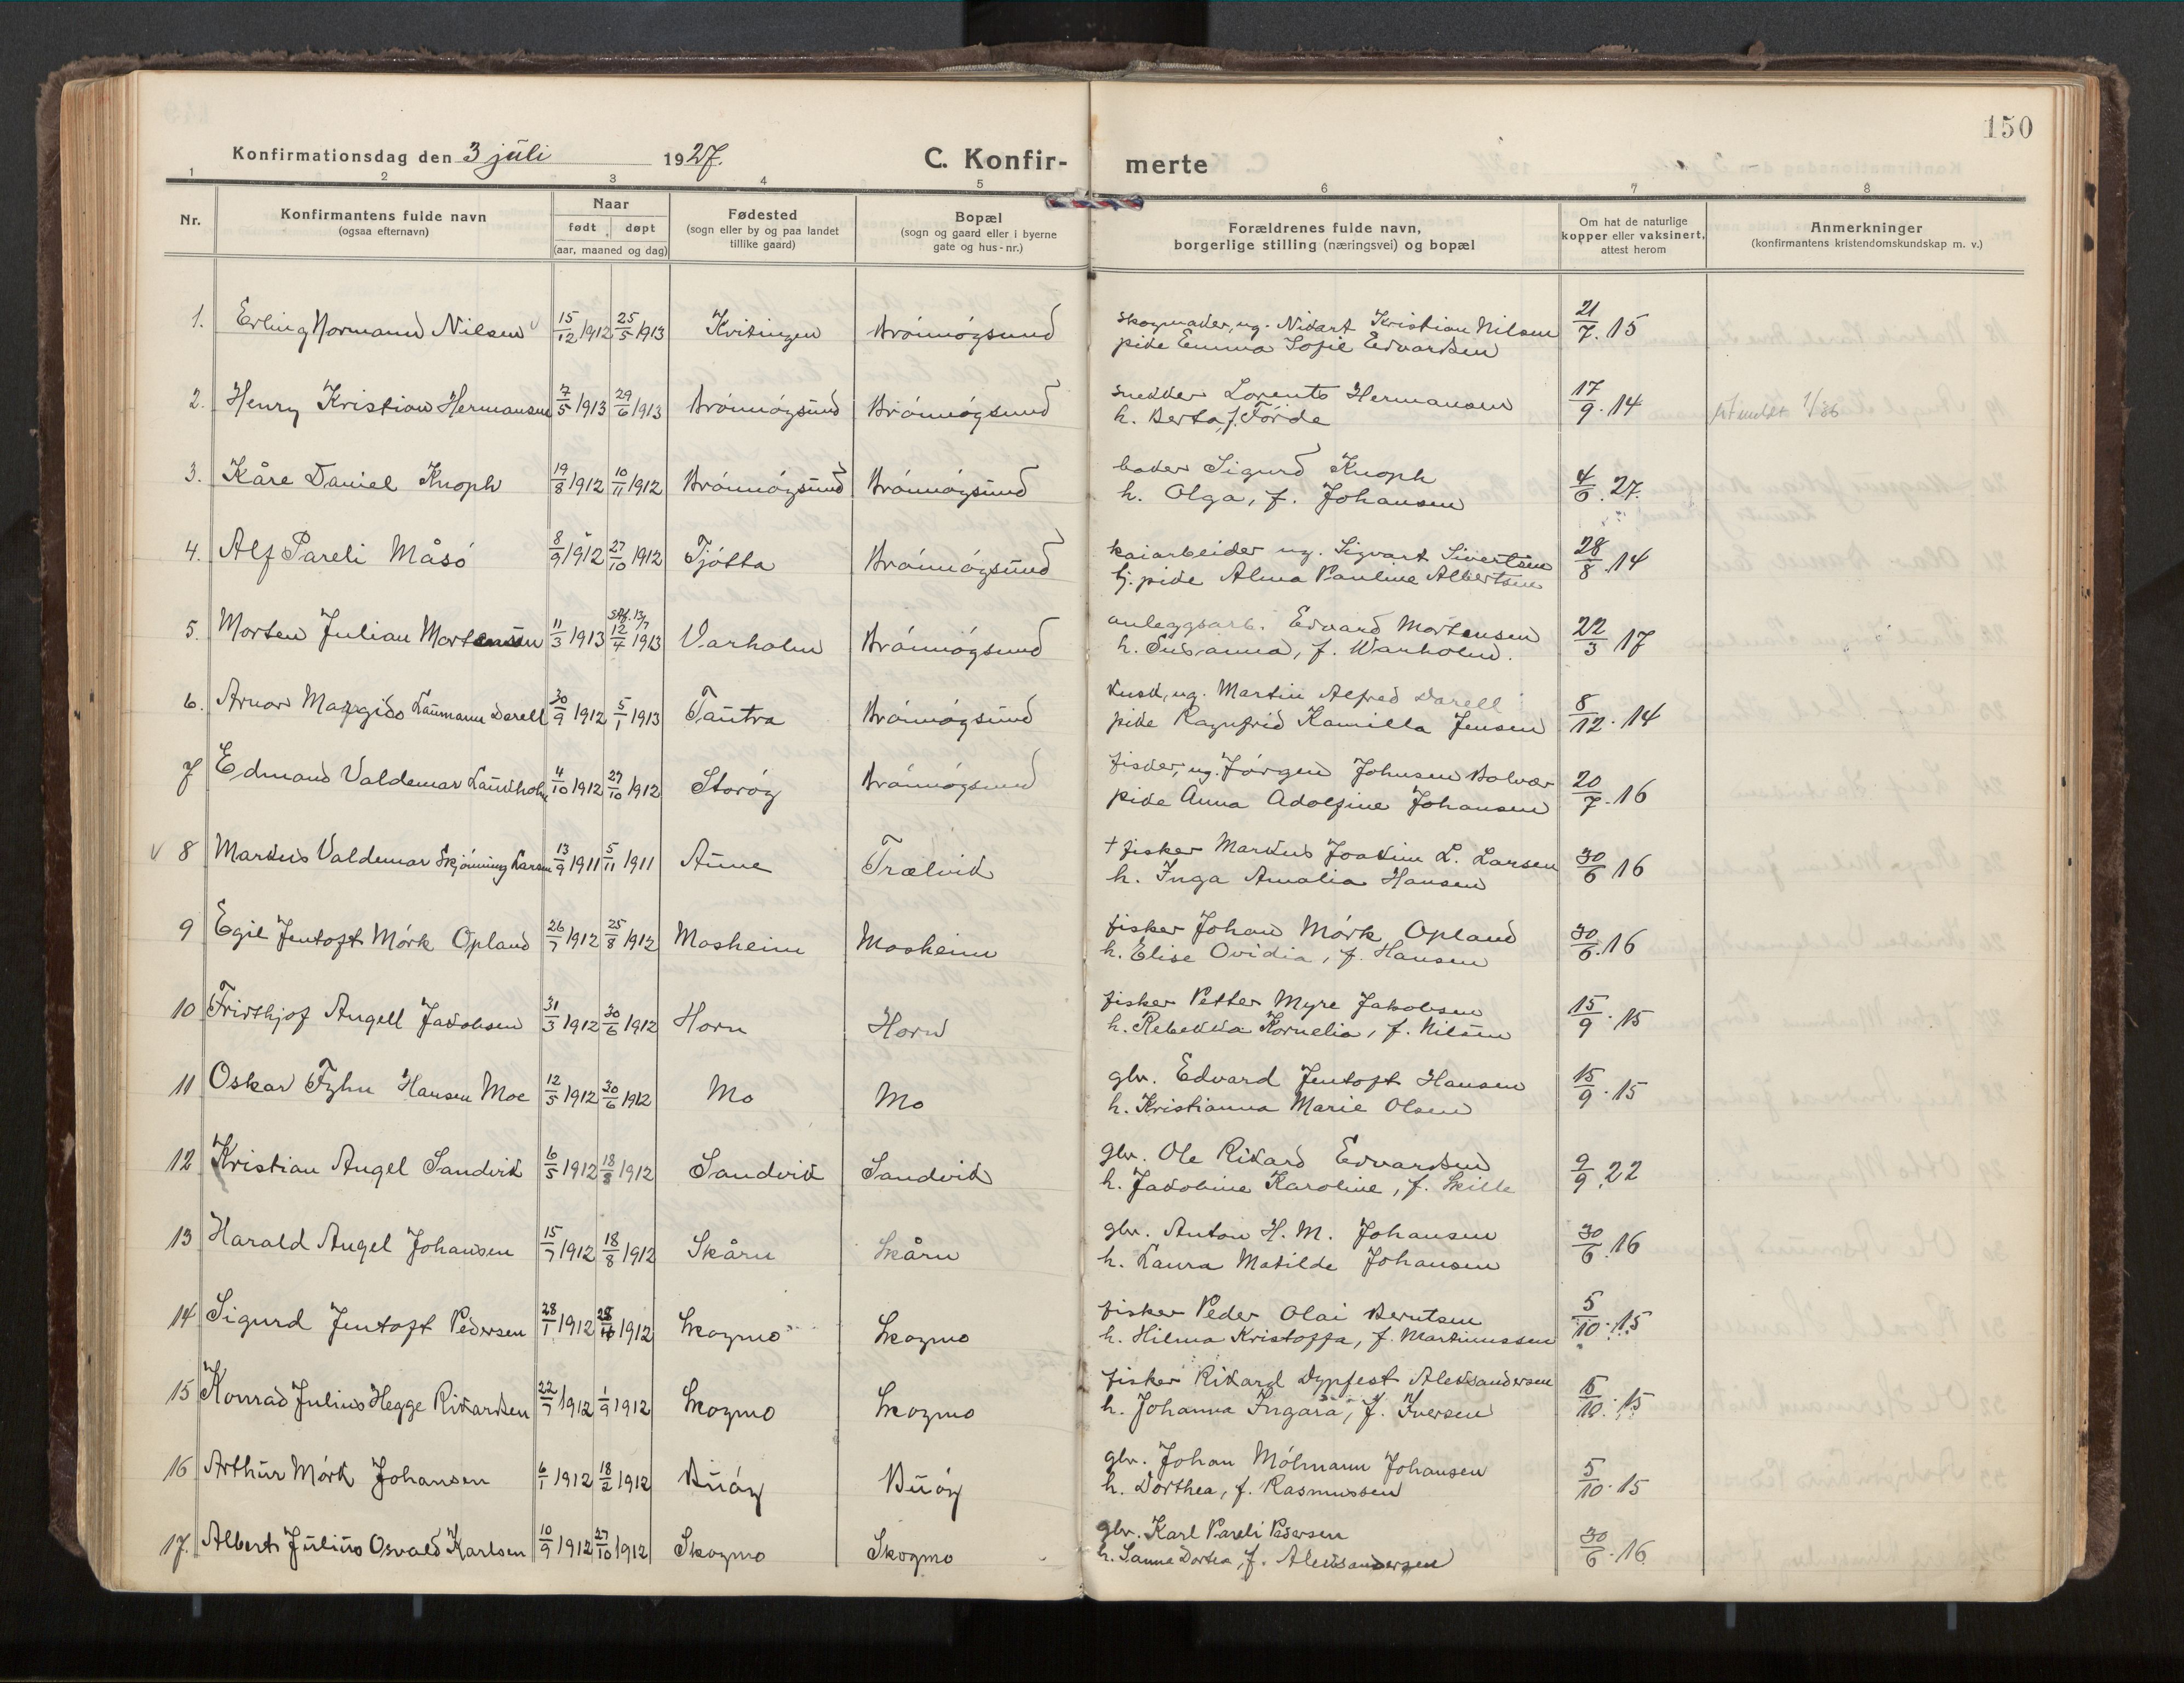 150
Konfirmationsdag den 3 juli 1927.
C. Konfir- merte
1 2 3 4 5 6 7 8
Nr.
Konfirmantens fulde navn
(ogsaa efternavn)
Naar
født døpt
(aar, maaned og dag)
Fødested
(sogn eller by og paa landet
tillike gaard)
Bopæl
(sogn og gaard eller i byerne
gate og hus-nr.)
Forældrenes fulde navn,
borgerlige stilling (næringsvei) og bopæl
Om hat de naturlige
kopper eller vaksinert,
attest herom
Anmerkninger
(konfirmantens kristendomskundskap m. v.)
1. Erling Normann Nilsen 15/12 1912 25/5 1913 Kvitingen Brónnógsund skogmaker, ug. Nikart Kristian Nilsen 21/7. 15
pike Emma Sofie Edvardsen
2. Henry Kristian Hermansen 7/5 1913 29/6 1913 Brónnógsund Brónnógsund snekker Lorents Hermansen 17/9. 14
h. Berta, f. Förde
3. Kåre Daniel Knoph 19/8 1912 10/11 1912 Brónnógsund Brónnógsund baker Sigurd Knoph 4/6. 27.
h. Olga, f. Johansen
4. Alf Pareli Måsó 8/9 1912 27/10 1912 Tjótta Brónnógsund kaiarbeider ug. Sigvart Sivertsen 28/8. 14
tj. pike Alma Pauline Albertsen
5. Morten Julian Mortensen 11/3 1913 12/4 1913 Varholm Brónnógsund anleggsarb. Edvard Mortensen 22/3 17
h. Susanna, f. Warholm.
6. Arnor Margido Laumann Darell 30/9 1912 5/1 1913 Tautra Brónnógsund kusk, ug. Martin Alfred Darell 8/12. 14
pike Ragnfrid Kamilla Jensen
7 Edmand Valdemar Laukholm 4/10 1912 27/10 1912 Storóy Brónnógsund fisker, ug. Jórgen Johnsen Bolvær 20/7. 16
pike Anna Adolfine Johansen
v 8 Markus Valdemar Skjónning Larsen 13/9 1911 5/11 1911 Aune Trælvik † fisker Markus Joakim L. Larsen 30/6 16
h. Inga Amalia Hansen
9 Egil Jentoft Mórk Opland 26/7 1912 25/8 1912 Mosheim Mosheim fisker Johan Mórk Opland 30/6. 16
h. Elise Ovidia, f. Hansen
10 Fridthjof Angell Jakobsen 31/3 1912 30/6 1912 Horn Horn fisker Petter Myre Jakobsen 15/9. 15
h. Rebekka Kornelia, f. Nilsen
11 Oskar Fyhn Hansen Moe 12/5 1912 30/6 1912 Mo Mo gbr. Edvard Jentoft Hansen 15/9. 15
h. Kristianna Marie Olsen
12 Kristian Angel Sandvik 6/5 1912 18/8 1912 Sandvik Sandvik gbr. Ole Rikard Edvardsen 9/9. 22
h. Jakobine Karoline, f. Skille
13 Harald Angel Johansen 15/7 1912 18/8 1912 Skårn Skårn gbr. Anton H. M. Johansen 30/6. 16
h. Laura Matilde Johansen
14 Sigurd Jentoft Pedersen 28/1 1912 1912 Skogmo Skogmo fisker Peder Olai Berntsen 5/10. 15
h. Hilma Kristoffa, f. Martinussen
15 Konrad Julius Hegge Rikardsen 22/7 1912 1/9 1912 Skogmo Skogmo fisker Rikard Dypfest Aleksandersen 5/10. 15
h. Johanna Ingara, f. Iversen
16 Arthur Mórk Johansen 6/1 1912 18/2 1912 Buóy Buóy gbr. Johan Mólmann Johansen 5/10. 15
h. Dorthea, f. Rasmussen
17. Albert Julius Osvald Karlsen 10/9 1912 27/10 1912 Skogmo Skogmo gbr. Karl Pareli Pedersen 30/6. 16
h. Sanna Dortea, f. Aleksandersen